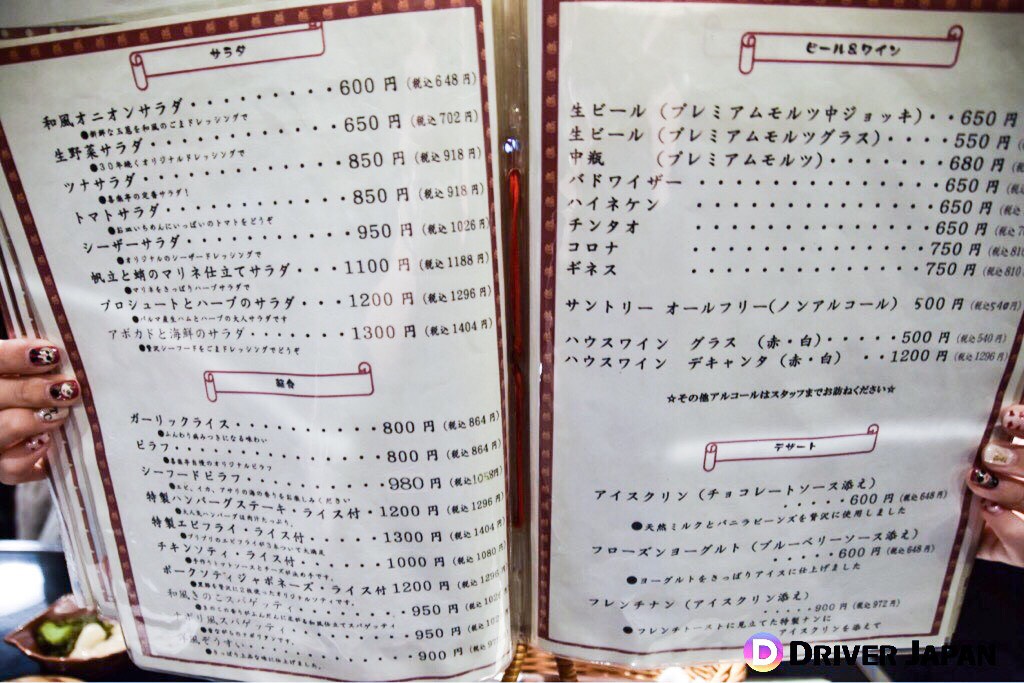 サラダ
和風オニオンサラダ・・・・・・・・・600円(税込648円)
●新鮮な玉葱を和風のごまドレッシングで
生野菜サラダ・・・・・・・・・・・650円(税込702円)
●30年続くオリジナルドレッシングで
ツナサラダ・・・・・・・・・・・・850円(税込918円)
●喜楽亭の定番サラダ!
トマトサラダ・・・・・・・・・・・850円(税込918円)
●お皿いちめんにいっぱいのトマトをどうぞ
シーザーサラダ・・・・・・・・・・950円(税込1026円)
●オリジナルのシーザードレッシングで
帆立と蛸のマリネ仕立てサラダ・・・1100円(税込1188円)
●マリネをさっぱりハーブサラダで
プロシュートとハーブのサラダ・・・1200円(税込1296円)
●パルマ産生ハムとハーブの大人サラダです
アボカドと海鮮のサラダ・・・・・・1300円(税込1404円)
●贅沢シーフードをごまドレッシングでどうぞ
ガーリックライス・・・・・・・・・800円(税込864円)
●ふんわり病みつきになる味わい
ピラフ・・・・・・・・・・・・・・800円(税込864円)
●喜楽亭自慢のオリジナルピラフ
シーフードピラフ・・・・・・・・・980円(税込1058円)
●エビ、イカ、アサリの海の香りをお楽しみください
特製ハンバーグステーキ・ライス付・1200円(税込1296円)
●大人気ハンバーグは肉汁たっぷり。
特製エビフライ・ライス付・・・・・1300円(税込1404円)
●プリプリのエビフライが3本ついて大満足
チキンソティ・ライス付・・・・・・1000円(税込1080円)
●手作りトマトソースとチーズがお洒落です。
ポークソティジャポネーズ・ライス付1200円(税込1296
●黒豚を贅沢に2枚使ったオリジナルソティです。
和風きのこスパゲッティ・・・・・・950円(税込102
●きのこの香りがふんだんに楽しめる和風仕立てスパゲッティ
ナポリ風スパゲッティ・・・・・・・950円(税込102
●昔ながらのナポリタンです。
洋風ぞうすい・・・・・・・・・・・900円(税込97
●さっぱり上品な味に仕上げました。
ビール&ワイン
生ビール(プレミアムモルツ中ジョッキ)・・650円
生ビール(プレミアムモルツグラス)・・・・550円
中瓶 (プレミアムモルツ)・・・・・・・680円
バドワイザー ・・・・・・・・・・・・650円(税込
ハイネケン ・・・・・・・・・・・・650円(税込
チンタオ ・・・・・・・・・・・・650円(税込70
コロナ ・・・・・・・・・・・・750円(税込810
ギネス ・・・・・・・・・・・・750円(税込810
サントリー オールフリー(ノンアルコール) 500円(税込540円)
ハウスワイン グラス (赤・白)・・・・・500円(税込540円)
ハウスワイン デキャンタ(赤・白) ・・1200円(税込1296円)
☆その他アルコールはスタッフまでお訪ねください☆
デザート
アイスクリン(チョコレートソース添え)
・・・・・600円(税込648円)
●天然ミルクとバニラビーンズを贅沢に使用しました
フローズンヨーグルト(ブルーベリーソース添え)
・・・・・600円(税込648円)
●ヨーグルトをさっぱりアイスに仕上げました
フレンチナン(アイスクリン添え)
・・・・・900円(税込972円)
●フレンチトーストに見立てた特製ナンに
アイスクリンを添えて
DRIVER JAPAN